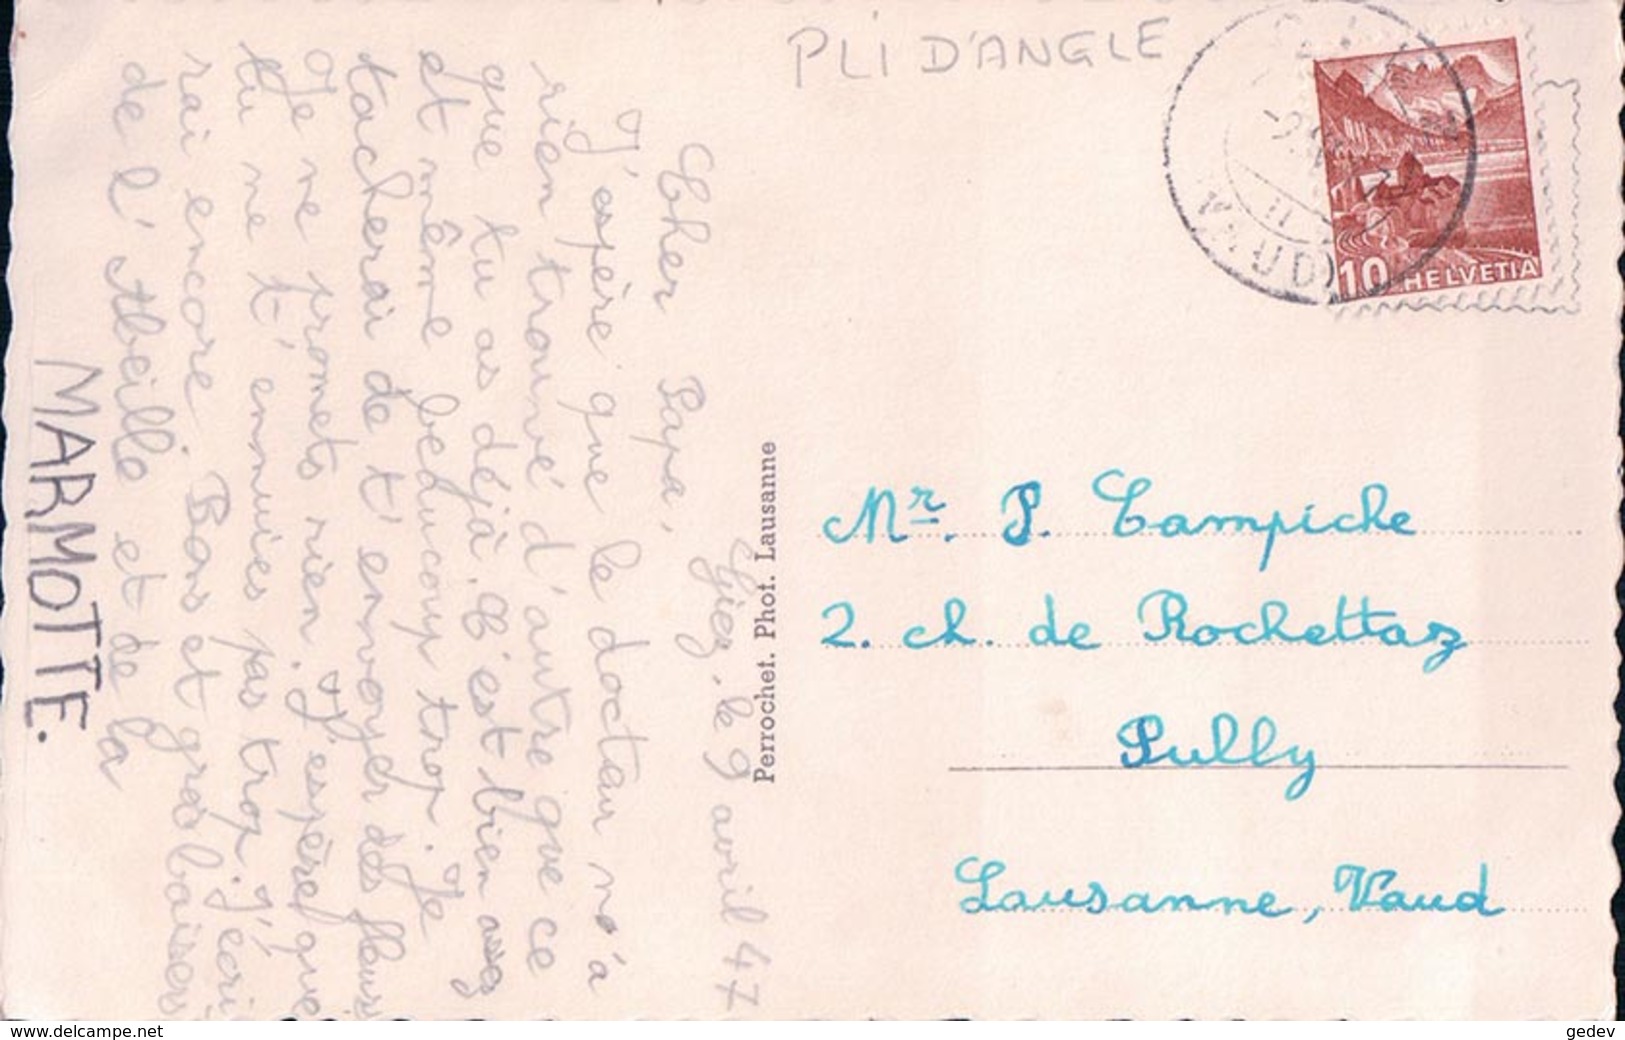 PLI D'ANGLE
Giez, le 9 avril 47
Cher Papa,
J'espère que le docteur n'a
rien trouvé d'autre que ce
que tu as déjà. C'est bien assez
et même beaucoup trop. Je
tacherai de t'envoyer des fleurs
Je ne promets rien. J'espère que
tu ne t'ennuies pas trop. J'écri
rai encore. Bons et gros baisers
de l'Abeille et de la
MARMOTTE.
Perrochet. Phot. Lausanne
VAUD
10 HELVETIA
Mr. P. Campiche
2. ch. de Rochettaz
Pully
Lausanne, Vaud
www.delcampe.net
gedev